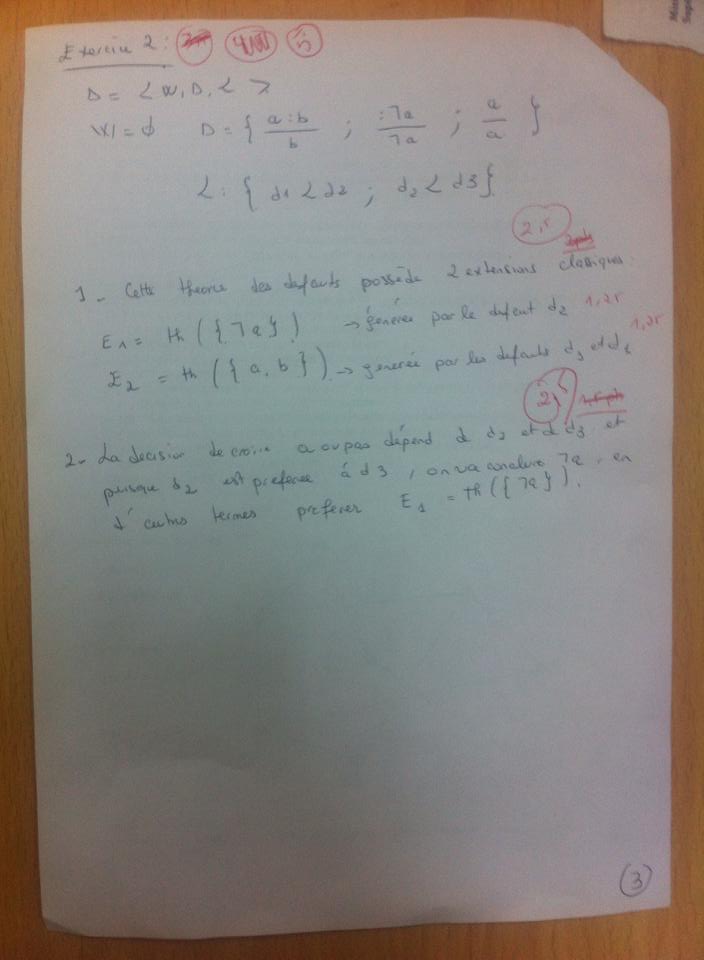 Exercice 2 : 4 5
Δ = < W, D, < >
W = ϕ D = { a : b / b ; : ¬a / ¬a ; a / a }
< : { d1 < d2 ; d2 < d3 }
2,5
1 - Cette theorie des defauts possède 2 extensions classiques :
E1 = th ( { ¬a } ) → générée par le defaut d2 1,25
E2 = th ( { a, b } ) → generée par les defauts d3 et d1 1,25
2,5
2 - La decision de croire a ou pas dépend d d2 et d d3 et
puisque d2 est preferée à d3, on va conclure ¬a, en
d'autres termes preferer E1 = th ( { ¬a } ).
3